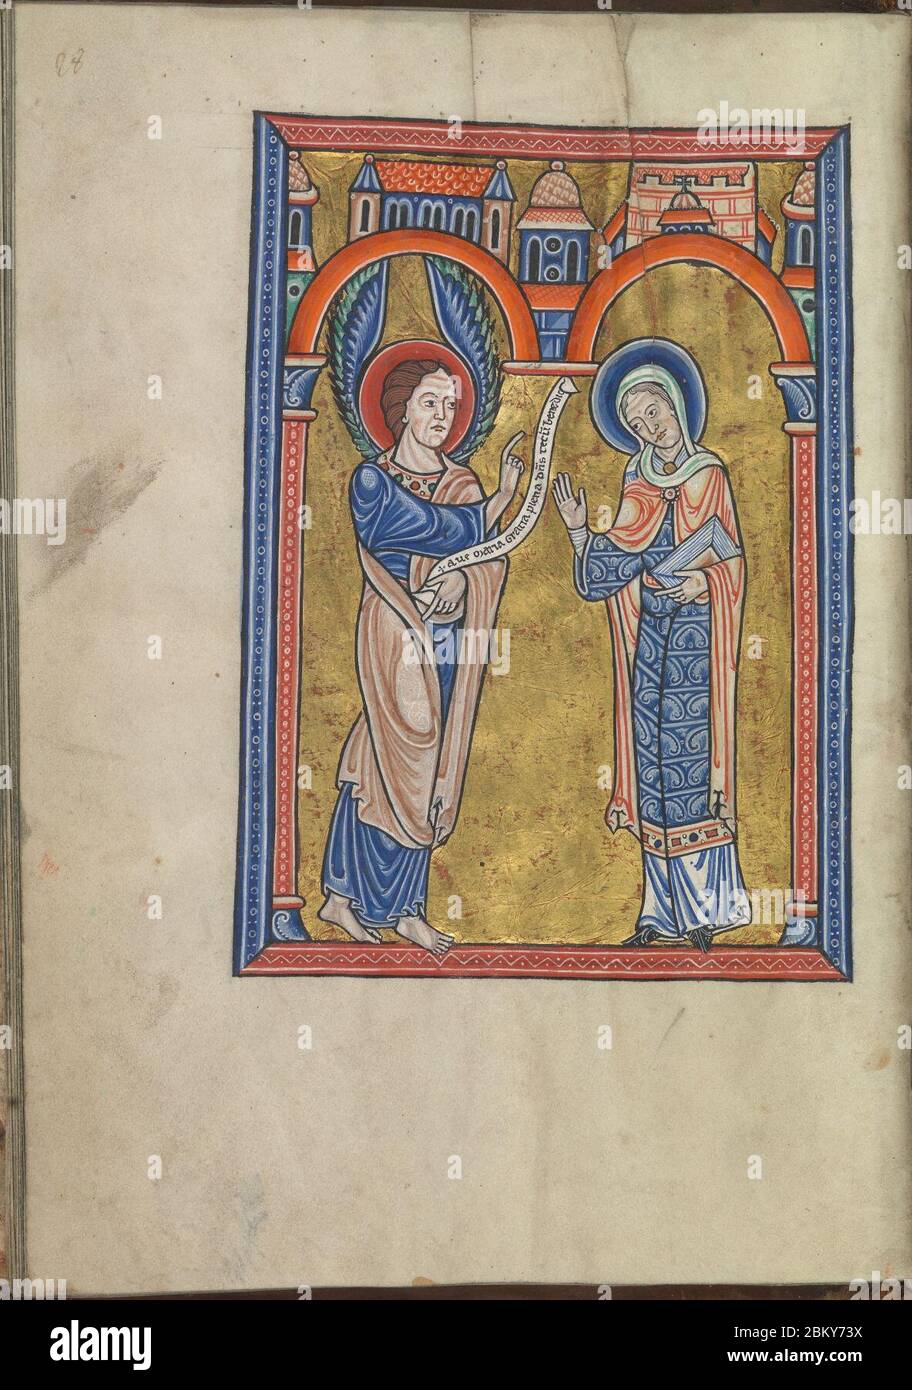 28
+ aue maria gratia plena dn̄s tecū benedic
a alamy
Image ID: 2BKY73X
www.alamy.com